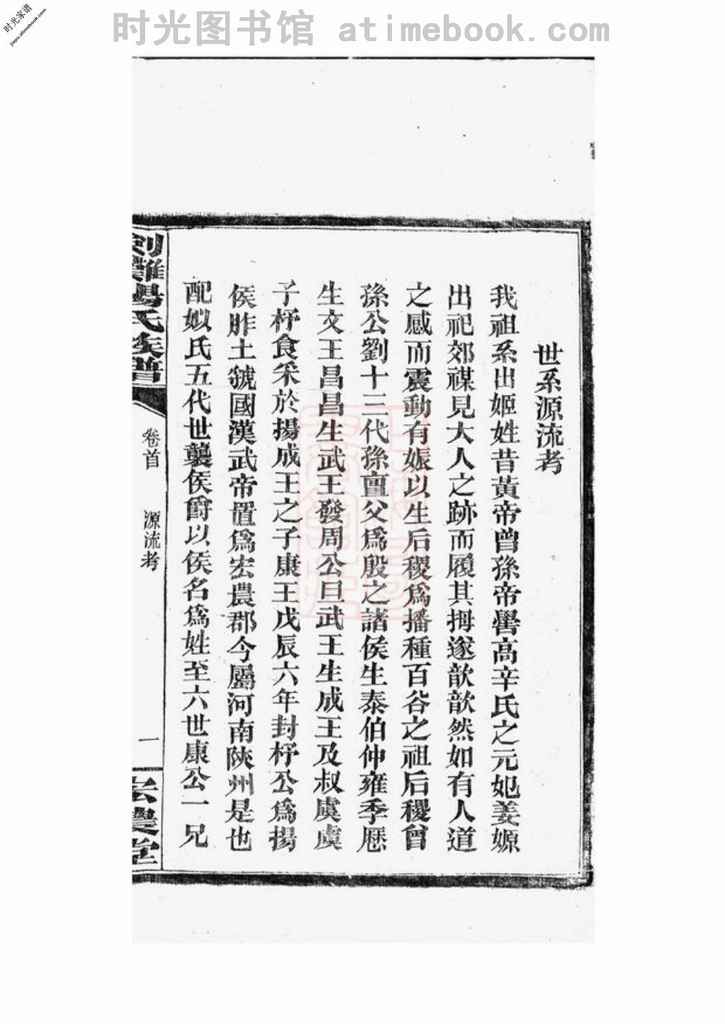 时光图书馆 atimebook.com
时光家谱
世系源流考
我祖系出姬姓昔黃帝曾孫帝嚳高辛氏之元妃姜嫄
出祀郊禖見大人之跡而履其拇遂歆歆然如有人道
之感而震動有娠以生后稷爲播種百谷之祖后稷曾
孫公劉十三代孫亶父爲殷之諸侯生泰伯仲雍季厯
生文王昌昌生武王發周公旦武王生成王及叔虞虞
子杼食采於揚成王之子康王戊辰六年封杼公爲揚
侯胙土虢國漢武帝置爲宏農郡今屬河南陝州是也
配姒氏五代世襲侯爵以侯名爲姓至六世康公一兄
劍灘楊氏族譜
卷首 源流考
一
宏農堂